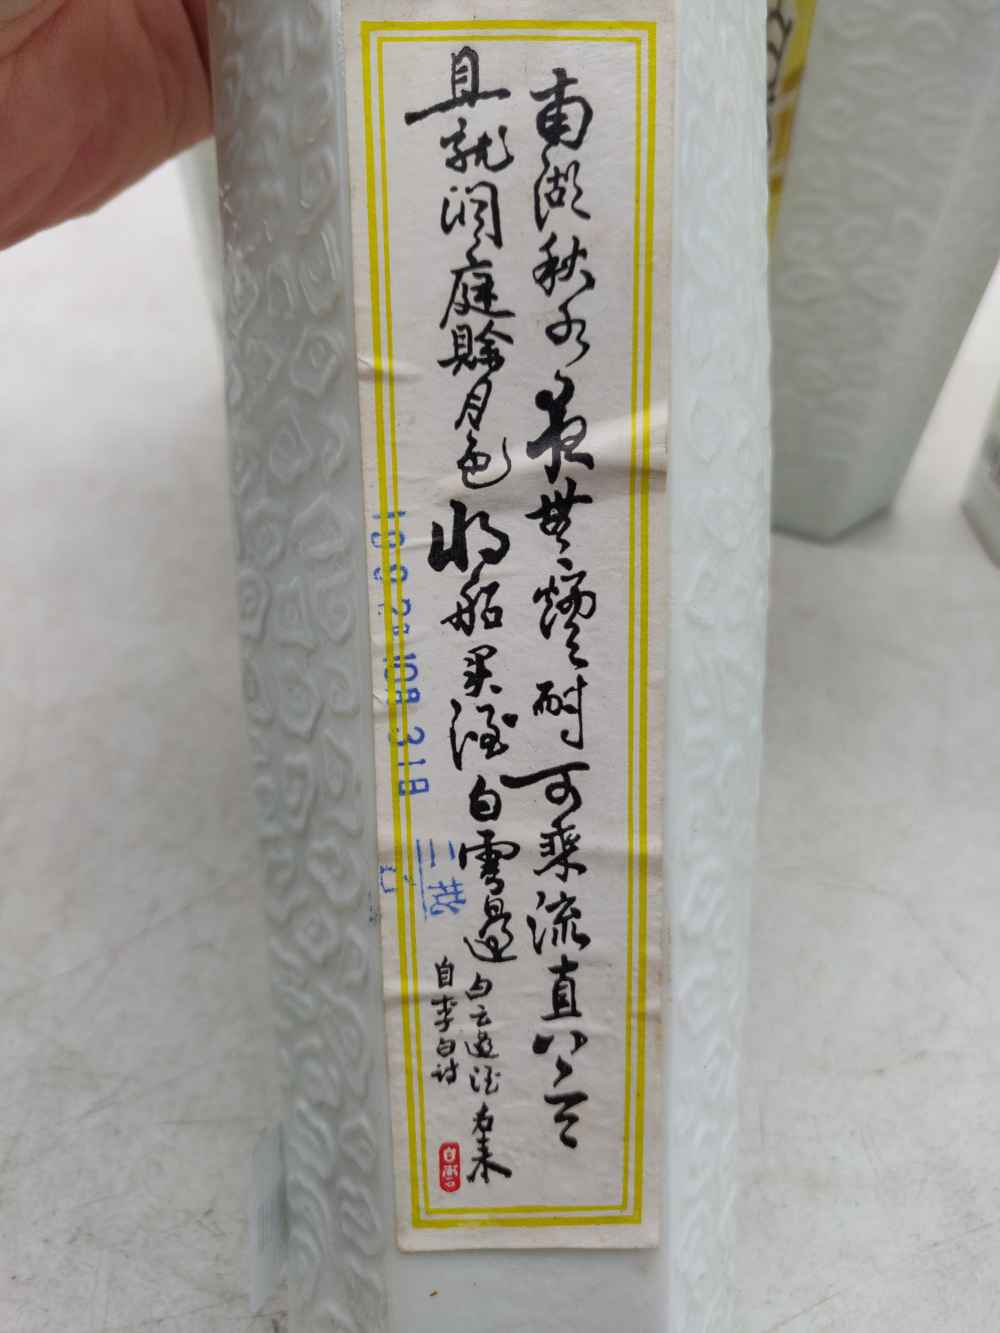 南湖秋水夜無煙耐可乘流直上天
且就洞庭賒月色将船买酒白雲邊
白云邊酒名来
自李白诗
白雲